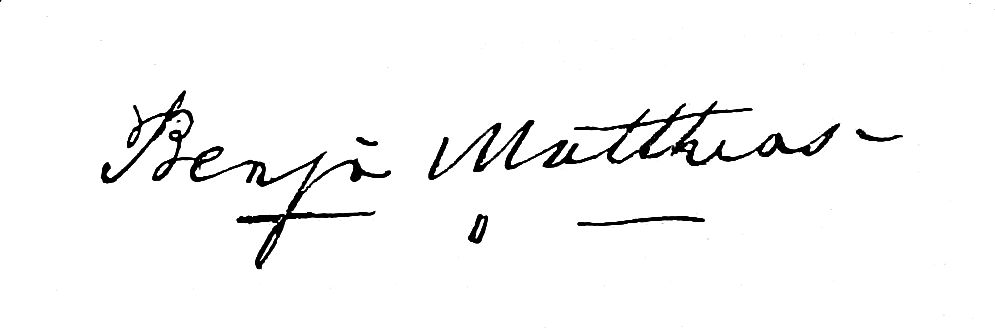 Benjn Matthias